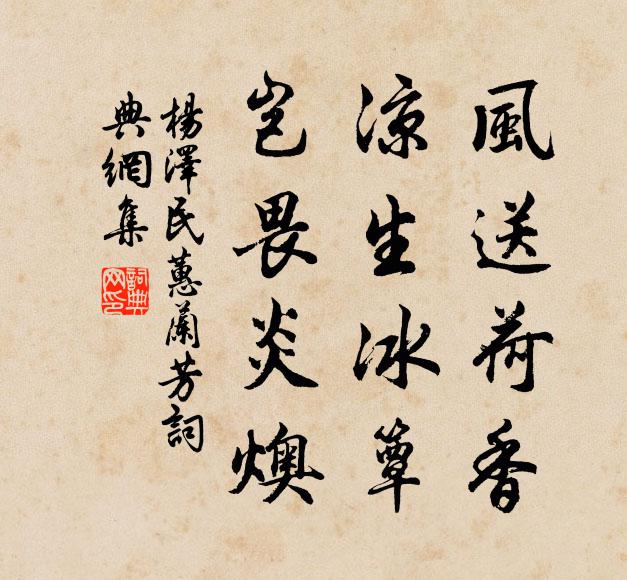 風送荷香
涼生冰簟
豈畏炎燠
楊澤民蕙蘭芳詞
典網集
詞典网印